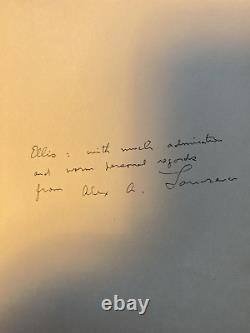 Ellis: with much admiration
and warm personal regards
from Alex A. Lawrence
ebay